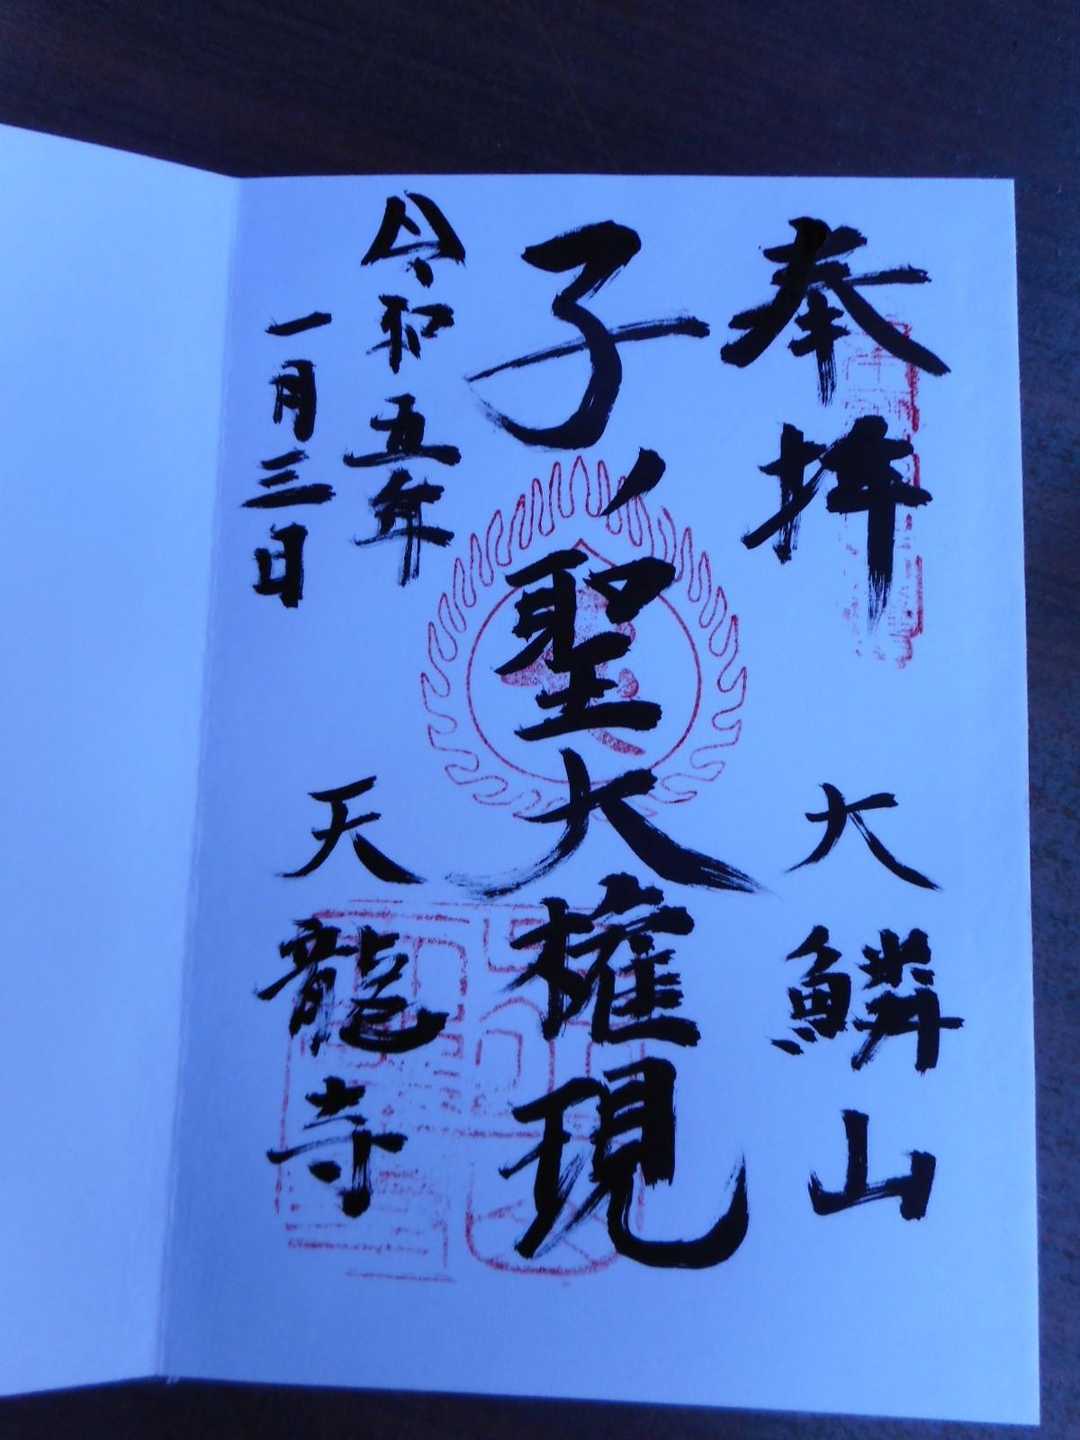 奉拝
大鱗山
子ノ聖大権現
令和五年
一月三日
天龍寺